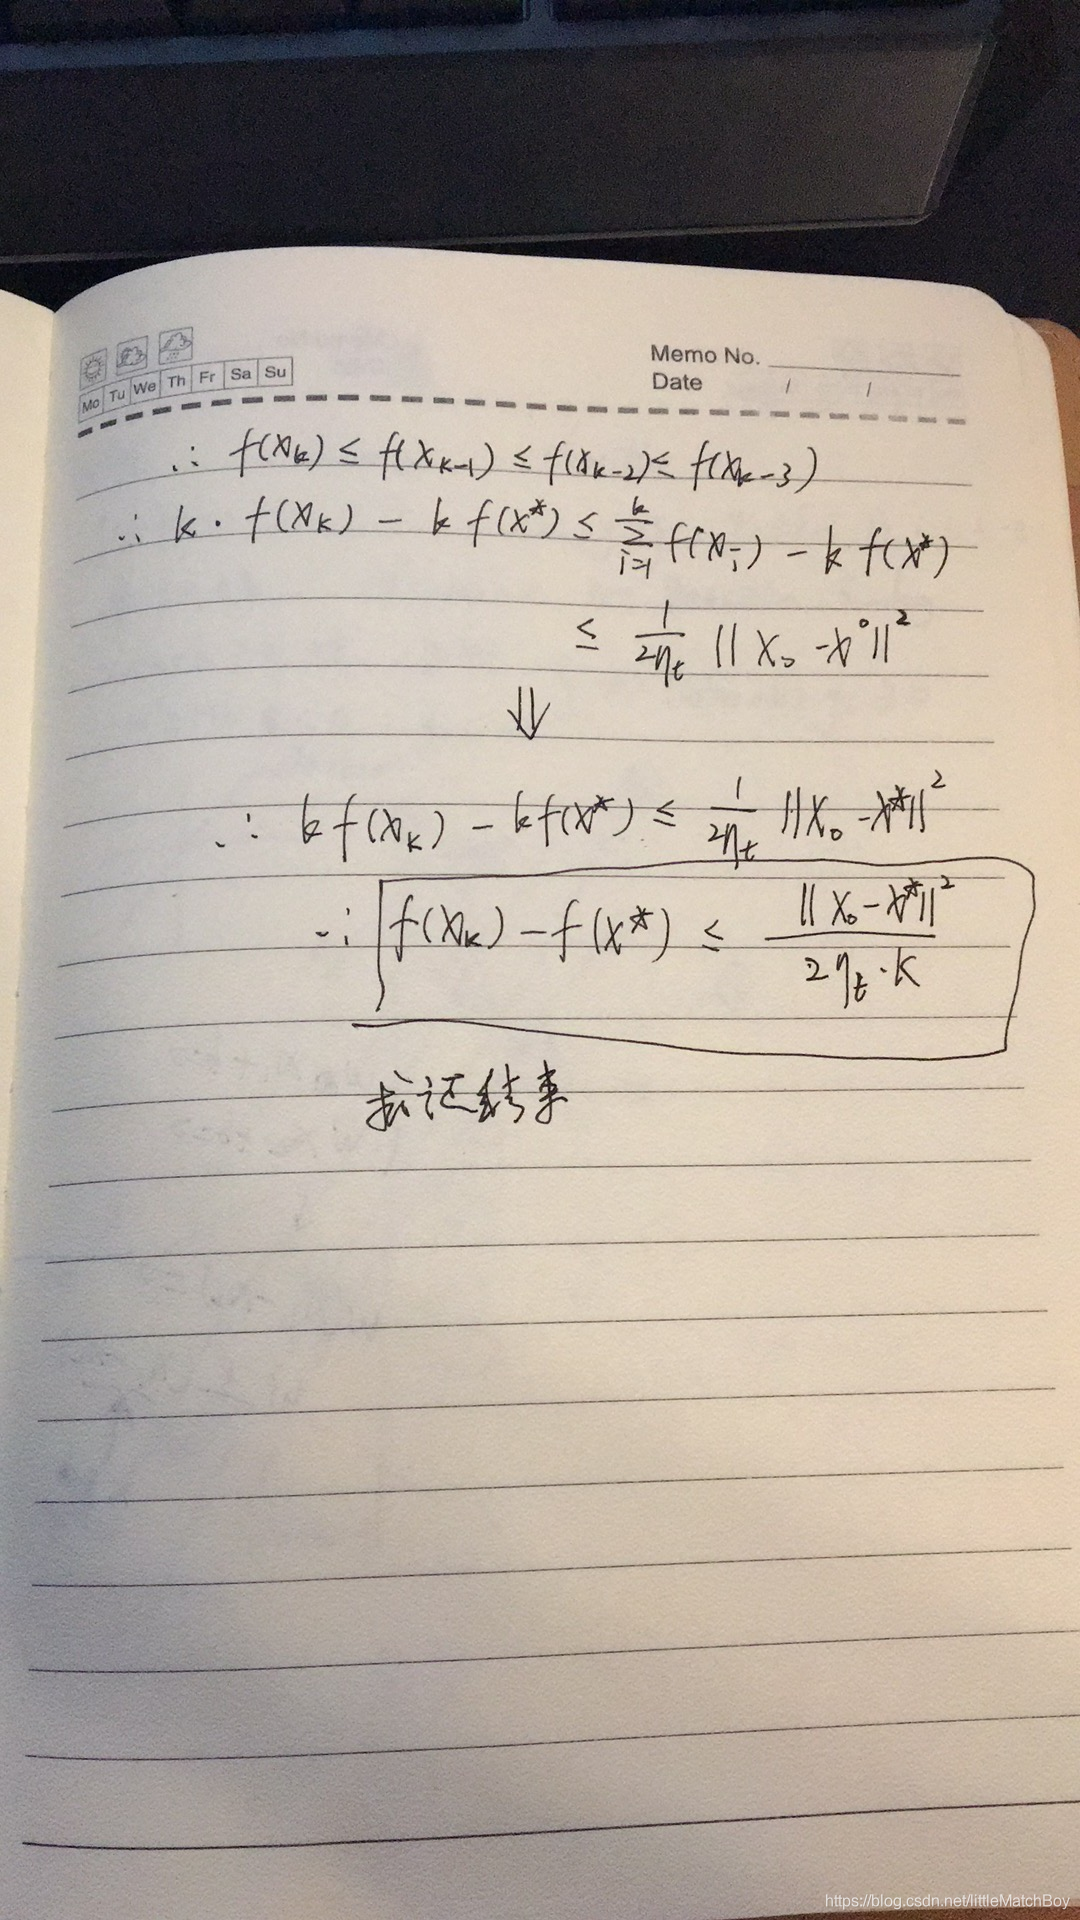 Memo No.
Mo Tu We Th Fr Sa Su
Date / /
∴ f(x_k) ≤ f(x_{k-1}) ≤ f(x_{k-2}) ≤ f(x_{k-3})
∴ k · f(x_k) - k f(x*) ≤ Σ_{i=1}^{k} f(x_i) - k f(x*)
≤ 1/(2η_t) ||x_0 - x°||²
⇓
∴ k f(x_k) - k f(x*) ≤ 1/(2η_t) ||x_0 - x*||²
∴ f(x_k) - f(x*) ≤ ||x_0 - x*||² / (2η_t · k)
证结束
https://blog.csdn.net/littleMatchBoy